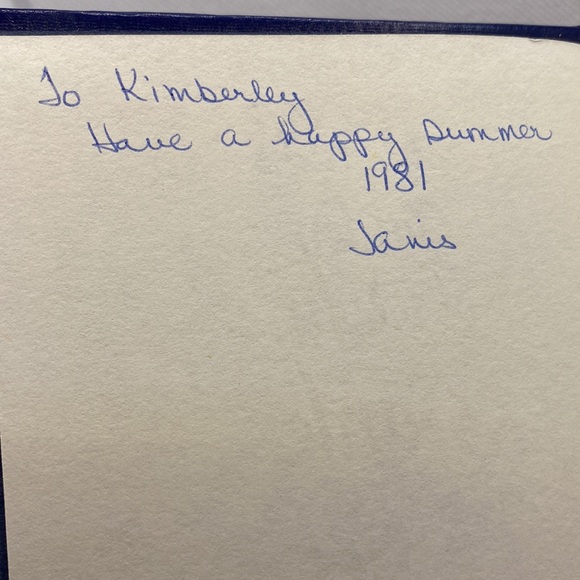 To Kimberley
Have a happy summer
1981
Janis